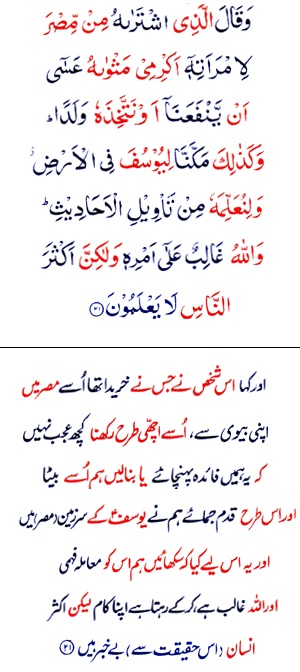 وَقَالَ الَّذِی اشْتَرٰىهُ مِنْ مِّصْرَ
لِامْرَاَتِهٖۤ اَكْرِمِیْ مَثْوٰىهُ عَسٰۤى
اَنْ یَّنْفَعَنَاۤ اَوْ نَتَّخِذَهٗ وَلَدًا ؕ
وَكَذٰلِكَ مَكَّنَّا لِیُوْسُفَ فِی الْاَرْضِ ؗ
وَلِنُعَلِّمَهٗ مِنْ تَاْوِیْلِ الْاَحَادِیْثِ ؕ
وَاللّٰهُ غَالِبٌ عَلٰۤى اَمْرِهٖ وَلٰكِنَّ اَكْثَرَ
النَّاسِ لَا یَعْلَمُوْنَ ﴿۲۱﴾
اور کہا اس شخص نے جس نے خریدا تھا اُسے مصر میں
اپنی بیوی سے، اُسے اچھی طرح رکھنا کچھ عجب نہیں
کہ یہ ہمیں فائدہ پہنچائے یا بنالیں ہم اُسے بیٹا
اور اس طرح قدم جمائے ہم نے یوسفؑ کے سرزمین (مصر) میں
اور یہ اس لیے کیا کہ سکھائیں ہم اس کو معاملہ فہمی
اور اللہ غالب ہے، کرکے رہتا ہے اپنا کام لیکن اکثر
انسان (اس حقیقت سے) بے خبر ہیں ﴿۲۱﴾